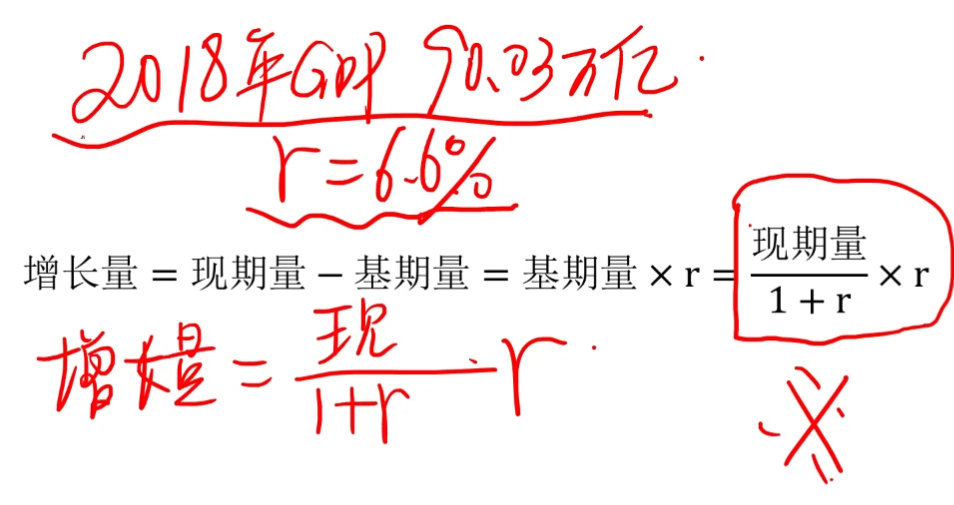 2018年GDP 90.03万亿
r=6.6%
增长量 = 现期量 − 基期量 = 基期量 × r = 现期量/(1 + r) × r
增长量 = 现/(1+r) · r